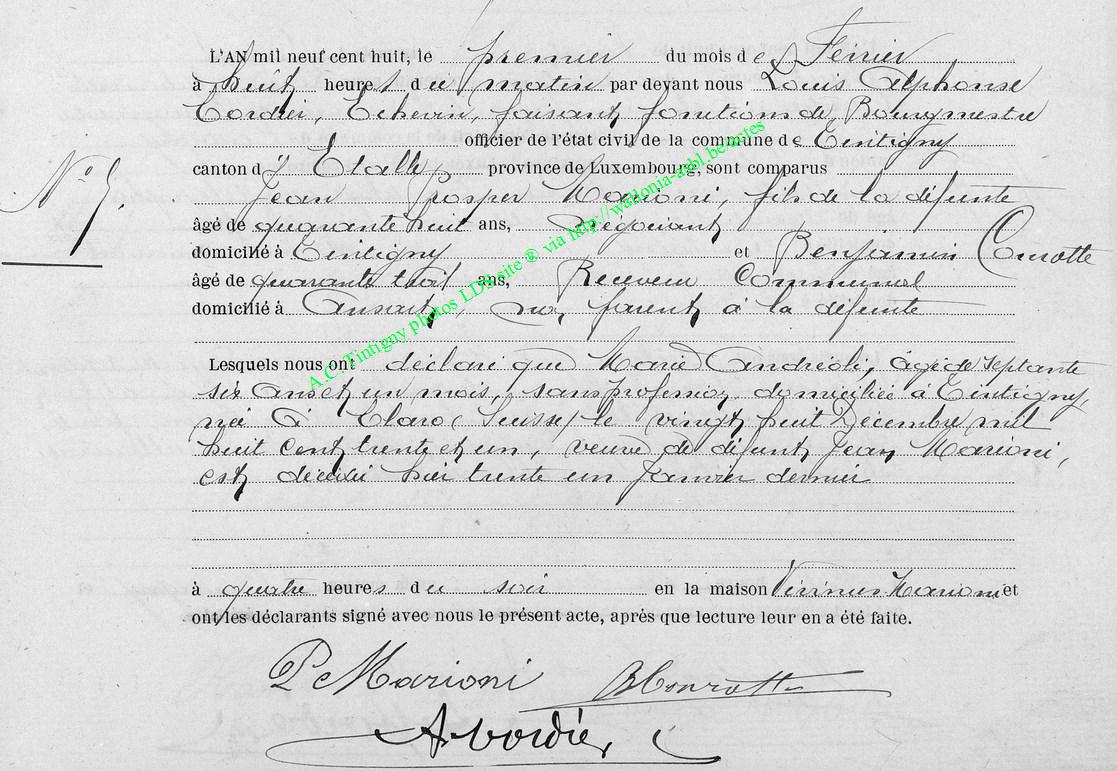 L'AN mil neuf cent huit, le premier du mois de Février
à huit heures du matin par devant nous Louis Alphonse
Cordier, Echevin, faisant fonctions de Bourgmestre
officier de l'état civil de la commune de Tintigny
canton d' Etalle, province de Luxembourg, sont comparus
Jean Prosper Marioni, fils de la défunte
âgé de quarante huit ans, Négociant
domicilié à Tintigny et Benjamin Conrotte
âgé de quarante trois ans, Receveur Communal
domicilié à Ansart, non parent à la défunte
N° 5.
Lesquels nous ont déclaré que Marie Andréoli, âgée de septante
six ans et un mois, sans profession, domiciliée à Tintigny,
née à Claro (Suisse) le vingt huit Décembre mil
huit cent trente et un, veuve de défunt Jean Marioni,
est décédée hier trente un Janvier dernier
à quatre heures du soir en la maison Marioni et
ont les déclarants signé avec nous le présent acte, après que lecture leur en a été faite.
P Marioni BConrotte
A Cordier
A.C. Tintigny photos LDS site ® via http://wallonia-asbl.be.sites